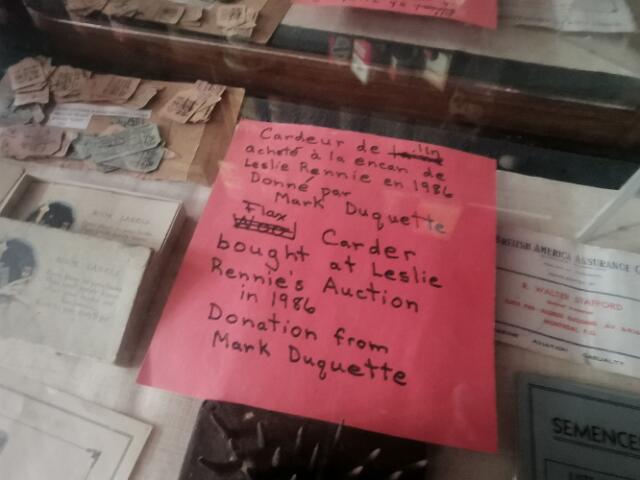 Cardeur de lin
acheté à la encan de
Leslie Rennie en 1986
Donné par
Mark Duquette
Flax
Wool Carder
bought at Leslie
Rennie's Auction
in 1986
Donation from
Mark Duquette
BRITISH AMERICA ASSURANCE
R. WALTER STAFFORD
MONTREAL, P.Q.
AVIATION CASUALTY
SEMENCE